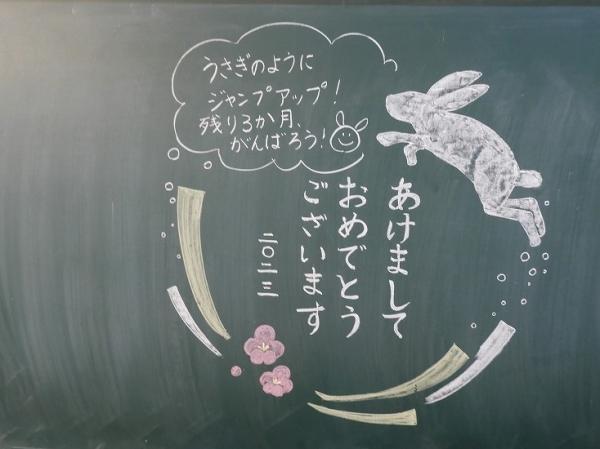 うさぎのように
ジャンプアップ!
残り3か月、
がんばろう!
あけまして
おめでとう
ございます
二〇二三